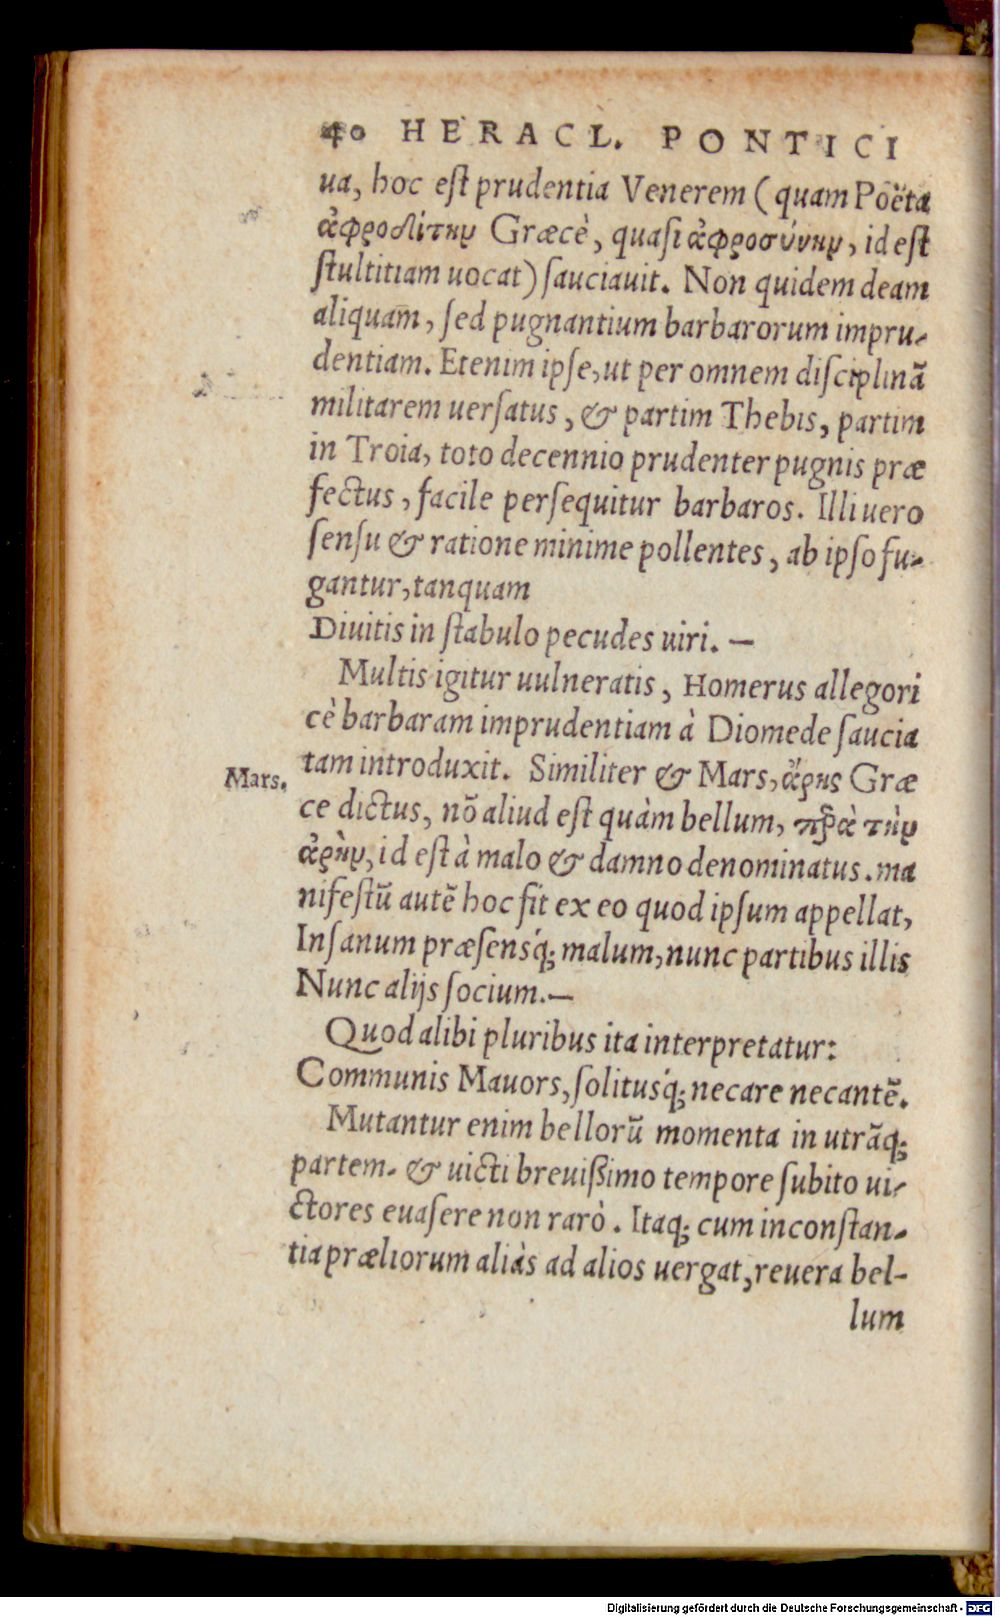 40 HERACL. PONTICI
ua, hoc eſt prudentia Venerem (quam Poëta
ἀφροδίτην Græcè, quaſi ἀφροσύνην, id eſt
ſtultitiam uocat) ſauciauit. Non quidem deam
aliquam, ſed pugnantium barbarorum impru-
dentiam. Etenim ipſe, ut per omnem diſciplinā
militarem uerſatus, & partim Thebis, partim
in Troia, toto decennio prudenter pugnis præ
fectus, facile perſequitur barbaros. Illi uero
ſenſu & ratione minime pollentes, ab ipſo fu-
gantur, tanquam
Diuitis in ſtabulo pecudes uiri. —
Multis igitur uulneratis, Homerus allegori
cè barbaram imprudentiam à Diomede ſaucia
tam introduxit. Similiter & Mars, ἄρης Græ
Mars.
ce dictus, nō aliud eſt quàm bellum, παρὰ τὴν
ἀρὴν, id eſt à malo & damno denominatus. ma
nifeſtū autē hoc fit ex eo quod ipſum appellat,
Inſanum præſensq́; malum, nunc partibus illis
Nunc alijs ſocium. —
Quod alibi pluribus ita interpretatur:
Communis Mauors, ſolitusq́; necare necantē.
Mutantur enim bellorū momenta in utrāq;
partem. & uicti breuiſsimo tempore ſubito ui-
ctores euaſere non rarò. Itaq; cum inconſtan-
tia præliorum aliàs ad alios uergat, reuera bel-
lum
Digitalisierung gefördert durch die Deutsche Forschungsgemeinschaft - DFG